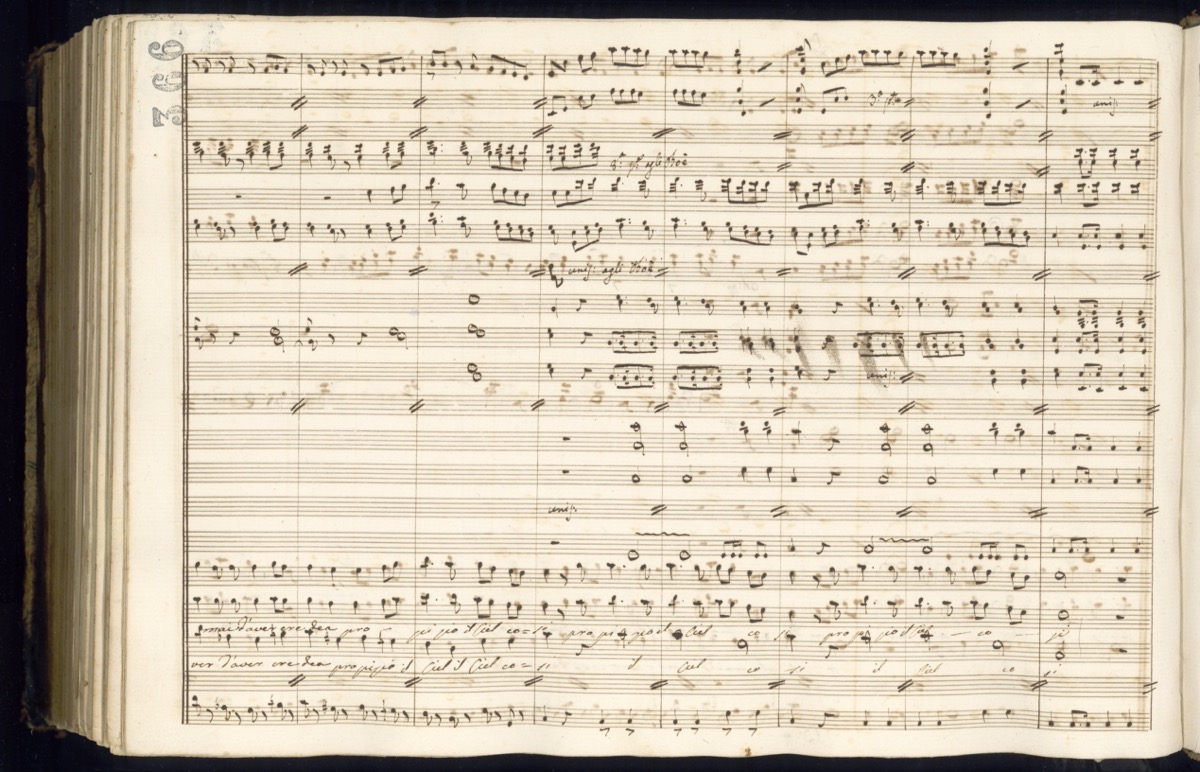 366
unis:
unis: agli
unis:
unis:
mai d'aver credea pro - pizio il Ciel co=sì propizio il Ciel co sì propizio il Ciel - co - sì
ver d'aver credea propizio il Ciel il Ciel co=sì il Ciel co sì il Ciel co sì